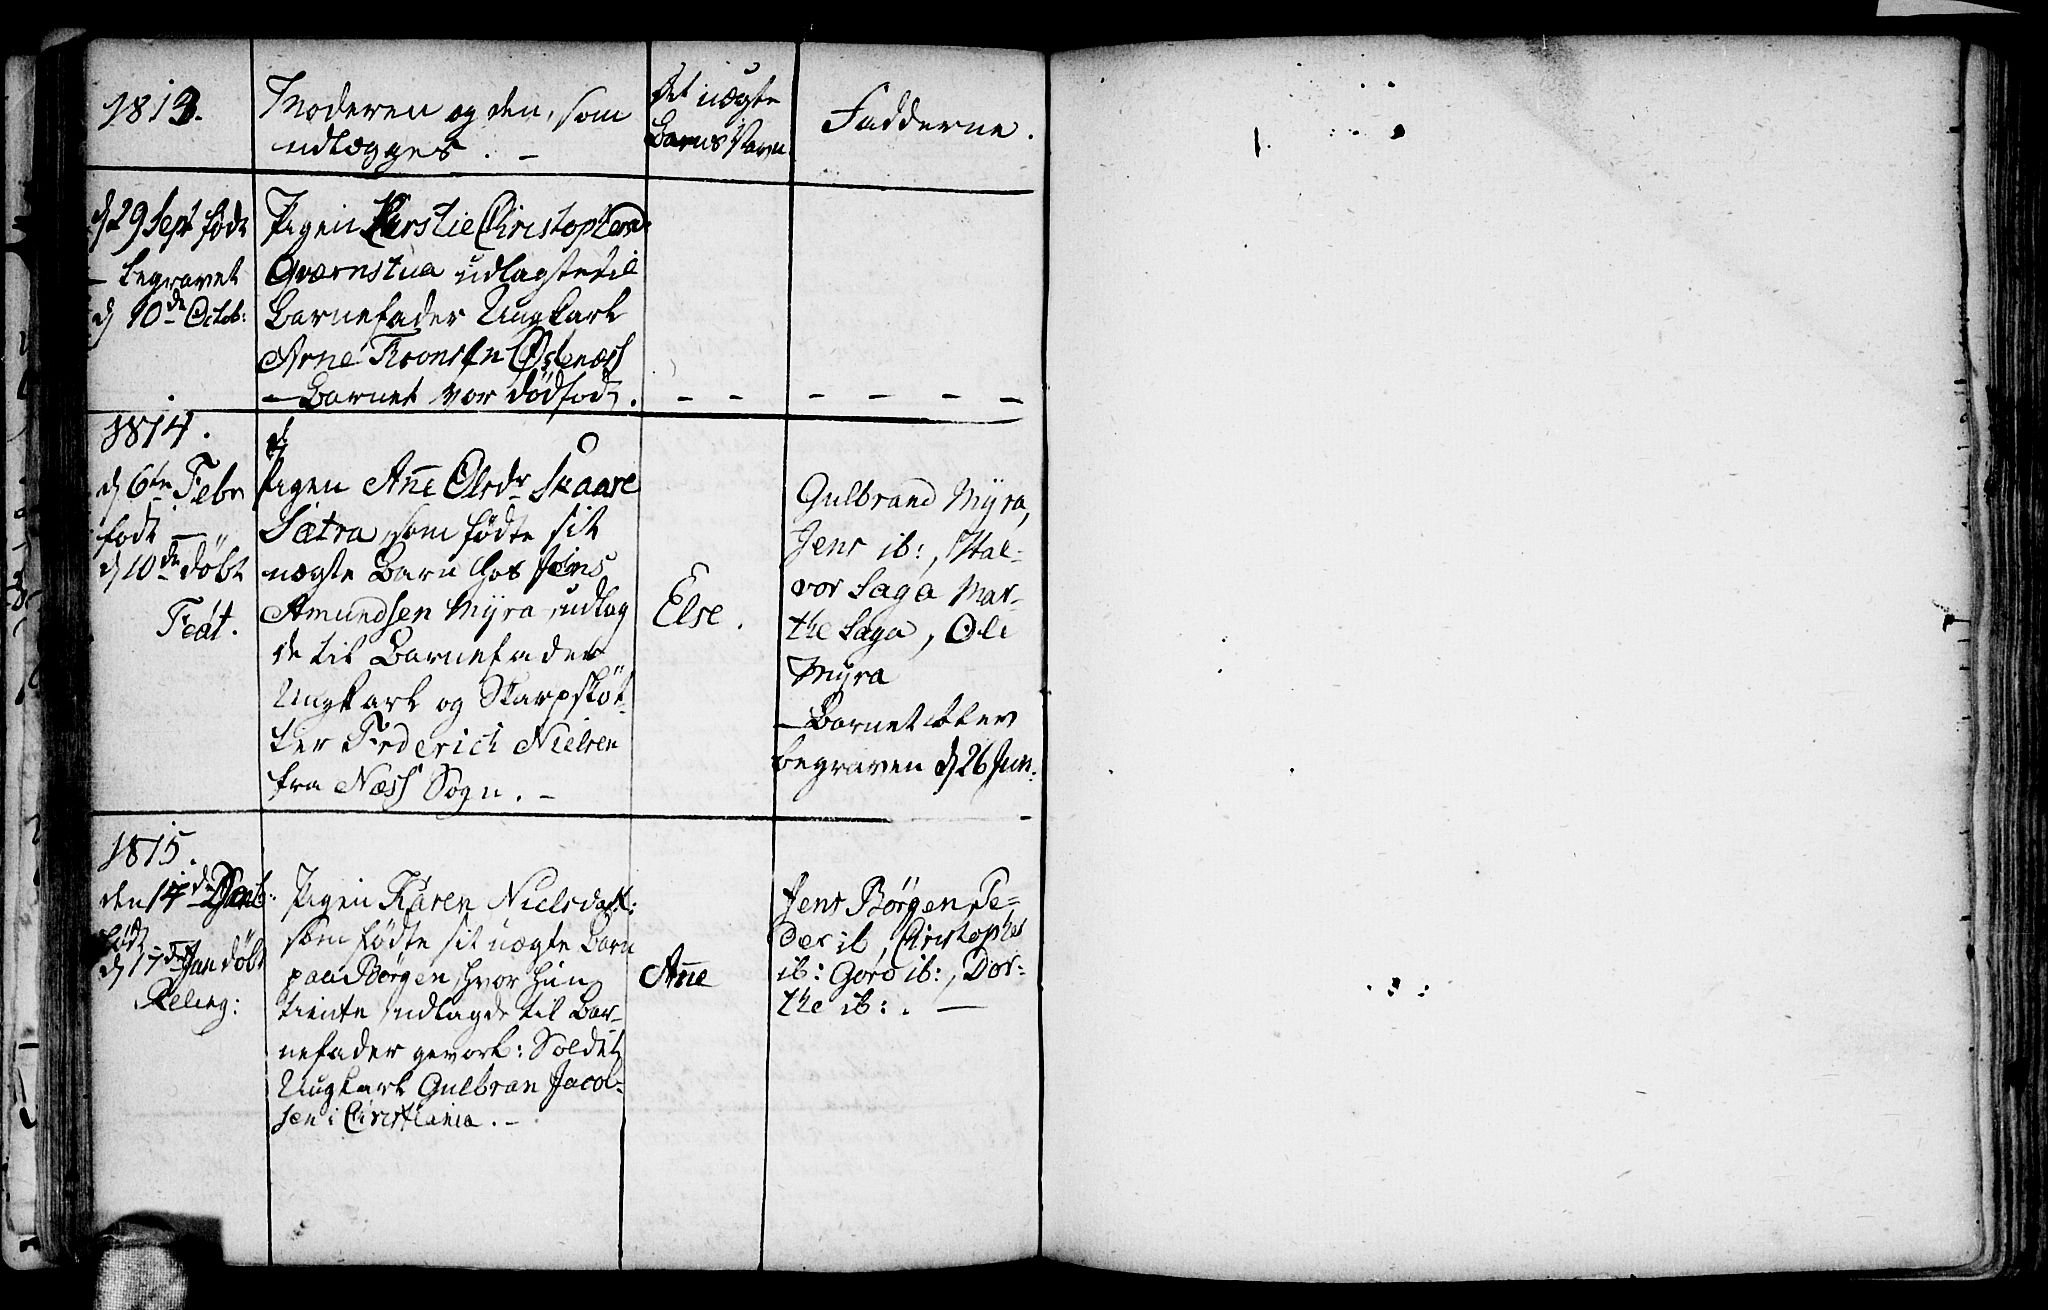 1813.
Moderen og den, som
udlægges. -
Det uægte
Barns Navn.
Fadderne.
d 29 Sept født
- begravet
d 10de Octob:
Pigen Kirstie Christophersd:
Qværnstua udlagste til
Barnefader Ungkarl
Arne Thronsen Østenæss
- Barnet var dødfød.
- - - - - - -
1814.
d 6te Febr
født -
d 10de døbt
Feat.
Pigen Añe Olsdr Skaare
Sætra, som fødte sit
uægte Barn hos Jens
Amundsen Myra, udlag
de til Barnefader
Ungkarl og Skarpskøt-
ter Frderich Nielsen
fra Næss Sogn. -
Else.
Gulbrand Myra,
Jens ib:, Hal-
vor Saga Mar-
the Saga, Ole
Myra
- Barnet blev
begraven d 26 Jun:
1815.
den 14de
født
d 17de Jan døbt
Pigen Karen Nielsdatt:
som fødte sit uægte Barn
paa Børgen, hvor hun
tiente udlagde til Bar-
nefader gevorb: Soldat
Ungkarl Gulbran Jacob-
sen i Christiania. -
Añe
Jens Børgen, Pe-
der ib, Christopher
ib: Goro ib:, Dor-
the ib:. -